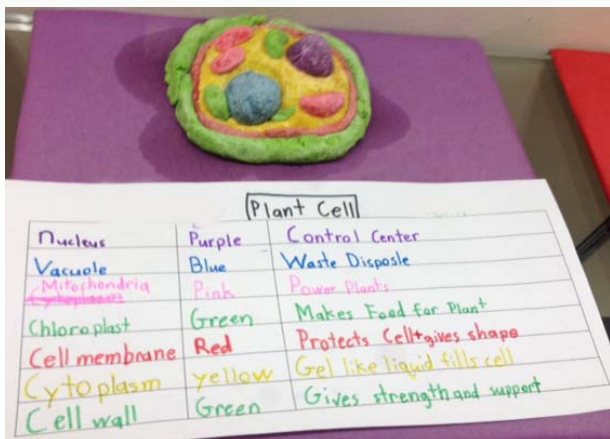 Plant Cell
nucleus Purple Control Center
Vacuole Blue Waste Disposle
Mitochondria Pink Power Plants
Chloroplast Green Makes Food for Plant
Cell membrane Red Protects Cell+gives shape
Cytoplasm yellow Gel like liquid fills cell
Cell wall Green Gives strength and support